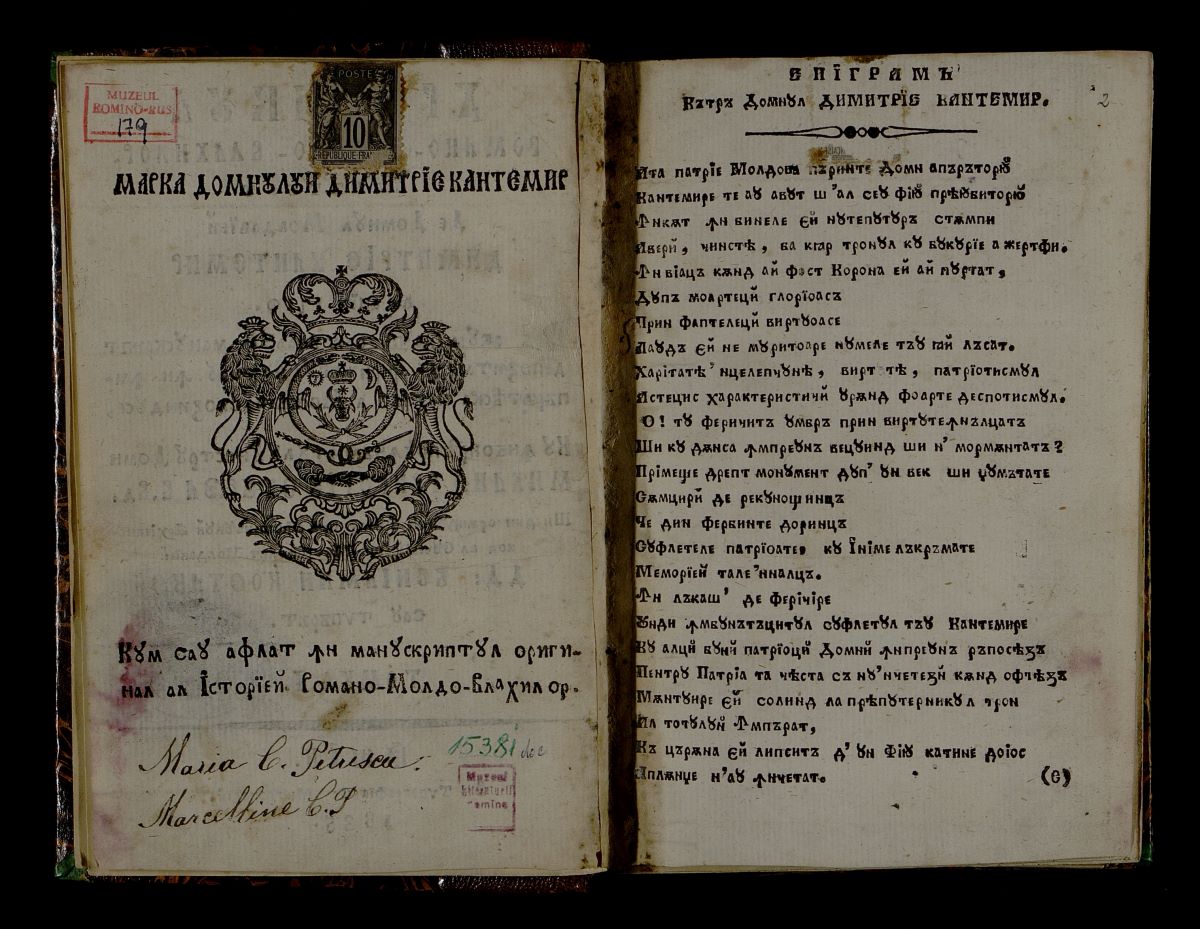 MUZEUL
ROMINO-RUS
179
POSTES
10
REPUBLIQUE FRA
МАРКА ДОМНꙋЛꙋИ ДИМИТРЇЕ КАНТЕМИР
Кꙋм саꙋ афлат ꙟн манꙋскриптꙋл ориги-
нал ал Історїей Романо-Молдо-Влахилор.
Maria C. Petrescu.
15381
Marcelline C. P
Muzeul
Literaturii
Romîne
2
ЕПІГРАМЪ
Кътръ Домнꙋл ДИМИТРЇЕ КАНТЕМИР.
Ата патрїе Молдова пъринте Домн апъръторю̆
Кантемире те аꙋ авꙋт ш'ал сеꙋ фїю̆ прѣювиторю̆
Ꙟнкѫт ꙟн бинеле єй нꙋтепꙋтꙋръ стѫмпи
Авери, чинсте, ба кїар тронꙋл кꙋ бꙋкꙋрїе а жертфи.
Ꙟн віацъ кѫнд ай фост Корона ей ай пꙋртат,
Дꙋпъ моартецй глорїоасъ
Прин фаптелецй виртꙋоасе
Лаꙋдъ єй не мꙋритоаре нꙋмеле тъꙋ їай лъсат.
Харітатѣ 'нцелепчꙋнѣ, вирт тѣ, патрїотисмꙋл
Ястецис характеристичй ꙋрѫнд фоарте деспотисмꙋл.
О! тꙋ феричит ꙋмбръ прин виртꙋте ꙟнълцатъ
Ши кꙋ дѫнса ꙟмпреꙋнъ вецꙋинд ши н' мормѫнтатъ?
Прїмеще дрепт монꙋмент дꙋп' ꙋн век ши џꙋмътате
Сѫмцирй де рекꙋнощинцъ
Че дин фербинте доринцъ
Сꙋфлетеле патрїоате кꙋ інїме лъкръмате
Меморїей тале 'нналцъ.
Ꙟн лъкаш' де ферічіре
Ꙋнди ꙟмбꙋнътъцитꙋл сꙋфлетꙋл тъꙋ Кантемире
Кꙋ алцй бꙋнй патрїоцй Домнй ꙟнпреꙋнъ ръпосѣзъ
Пентрꙋ Патрїа та чѣста съ нꙋ'нчетезй кѫнд офтѣзъ
Мѫнтꙋире єй солинд ла прѣпꙋтерникꙋл трон
Ал тотꙋлꙋй Ꙟмпърат,
Къ църѫна єй липситъ д' ꙋн фїю̆ катине доїос
Апѫнџе н'аꙋ ꙟнчетат.
(Є)